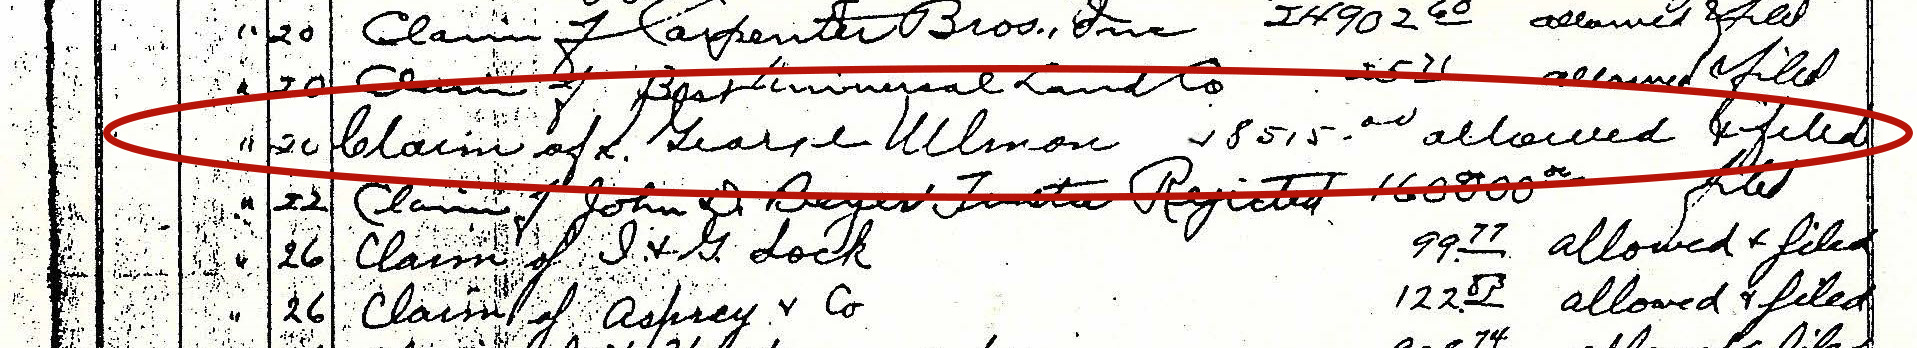 " 20 Claim of Carpenter Bros., Inc 24902 60 allowed & filed
" 20 Claim of Best Universal Land Co 25 71 allowed & filed
" 20 Claim of L. George Ulman 8515.00 allowed & filed
" 22 Claim of John D. Trustee Rejected 160000 00 filed
" 26 Claim of I. & G. Lock 99.77 allowed & filed
" 26 Claim of Asprey & Co 122. allowed & filed